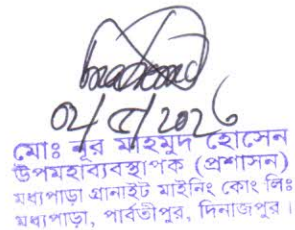 ০৮/৫/২০২৬
মোঃ নূর মাহমুদ হোসেন
উপমহাব্যবস্থাপক (প্রশাসন)
মধ্যপাড়া গ্রানাইট মাইনিং কোং লিঃ
মধ্যপাড়া, পার্বতীপুর, দিনাজপুর।